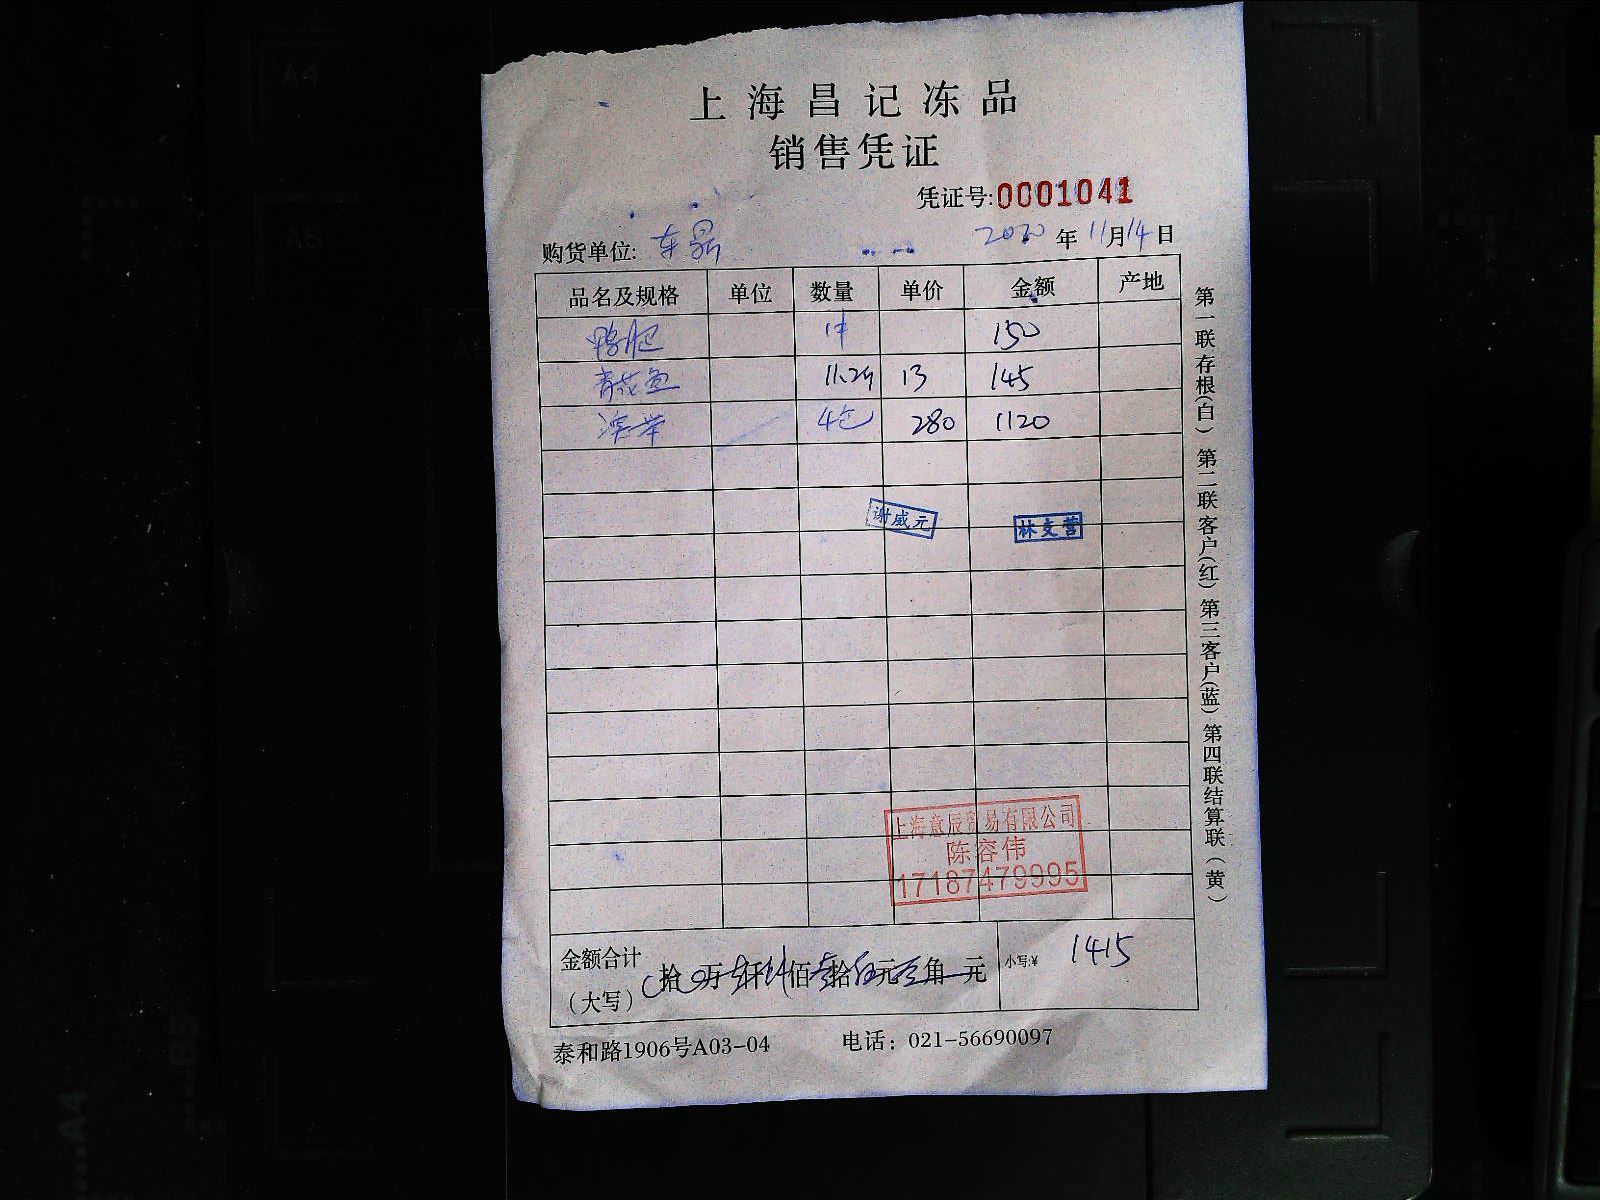 上海昌记冻品
销售凭证
凭证号:0001041
购货单位: 东 2020年11月14日
品名及规格 单位 数量 单价 金额 产地
鸭肫 1件 150
青花鱼 11.2斤 13 145
4包 280 1120
谢威元 林支营
上海意辰贸易有限公司
陈容伟
17187479995
金额合计
(大写) 拾 万 仟 佰 拾 元 角 元 小写:¥ 1415
泰和路1906号A03-04 电话：021-56690097
第一联存根(白) 第二联客户(红) 第三客户(蓝) 第四联结算联(黄)
A4
A5
B5
A4